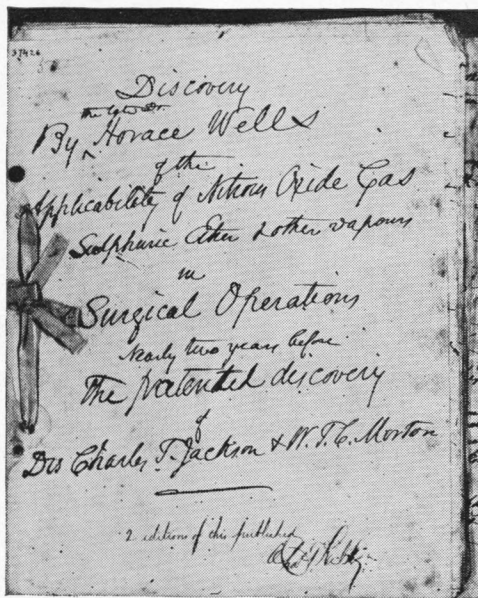 37426
Discovery
the late Dr
By Horace Wells
of the
Applicability of Nitrous Oxide Gas
Sulphuric Ether & other vapours
in
Surgical Operations
Nearly two years before
The patented discovery
of
Drs Charles T. Jackson & W. T. G. Morton
2 editions of this published